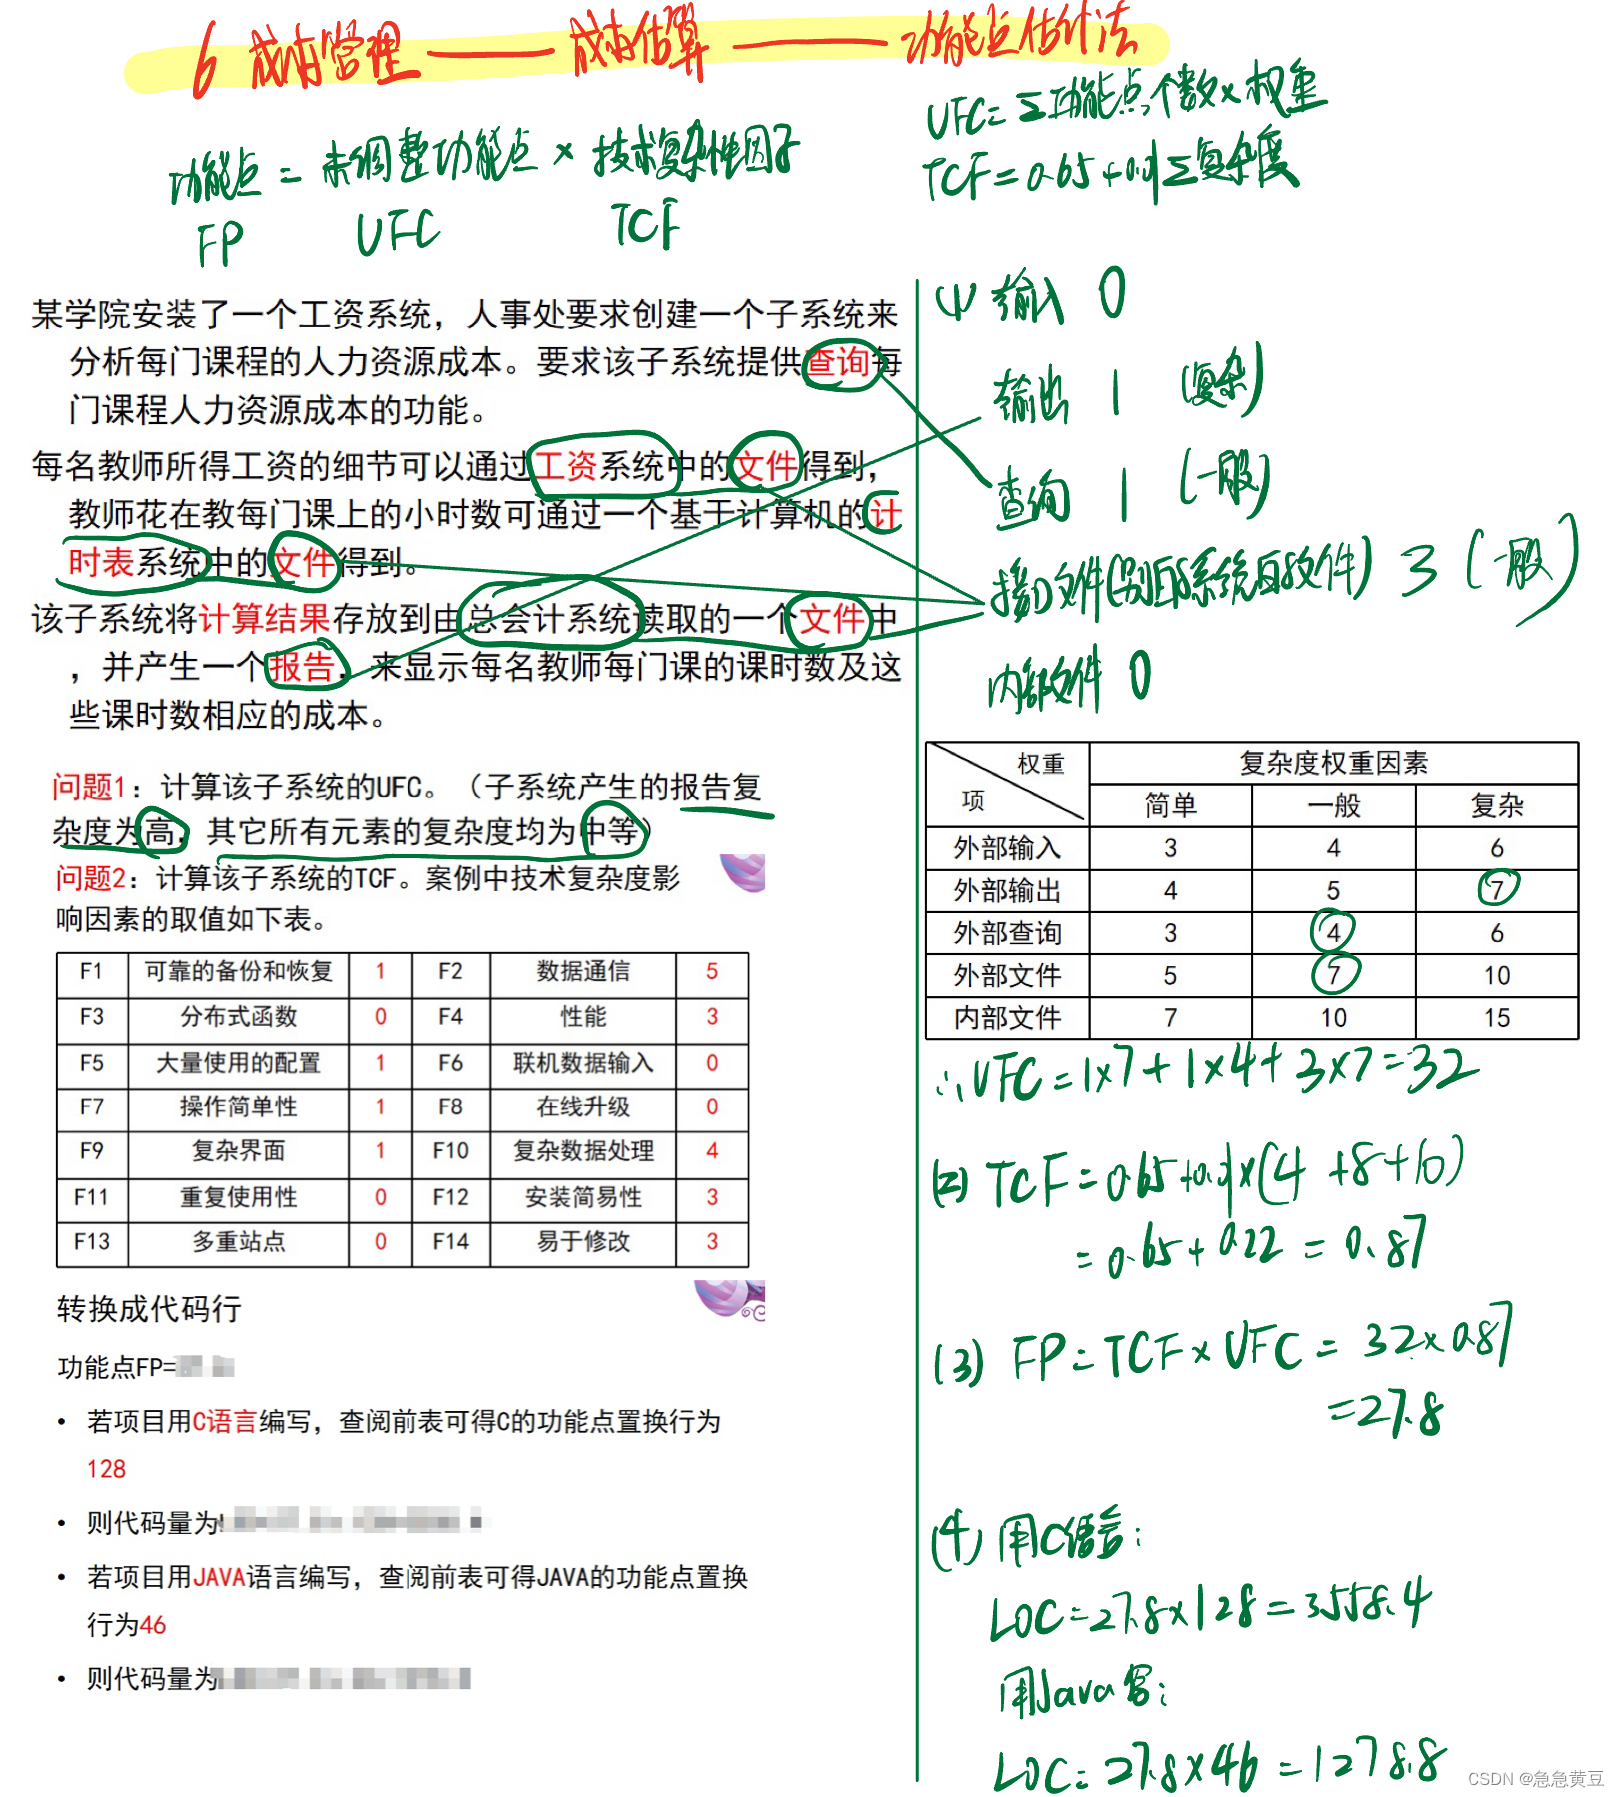 6 成本管理 —— 成本估算 —— 功能点估计法
功能点 = 未调整功能点 × 技术复杂性因子
FP UFC TCF
UFC=Σ功能点个数×权重
TCF=0.65+0.01Σ复杂度
某学院安装了一个工资系统，人事处要求创建一个子系统来
分析每门课程的人力资源成本。要求该子系统提供查询每
门课程人力资源成本的功能。
每名教师所得工资的细节可以通过工资系统中的文件得到，
教师花在教每门课上的小时数可通过一个基于计算机的计
时表系统中的文件得到。
该子系统将计算结果存放到由总会计系统读取的一个文件中
，并产生一个报告，来显示每名教师每门课的课时数及这
些课时数相应的成本。
问题1：计算该子系统的UFC。（子系统产生的报告复
杂度为高，其它所有元素的复杂度均为中等）
问题2：计算该子系统的TCF。案例中技术复杂度影
响因素的取值如下表。
F1 可靠的备份和恢复 1 F2 数据通信 5
F3 分布式函数 0 F4 性能 3
F5 大量使用的配置 1 F6 联机数据输入 0
F7 操作简单性 1 F8 在线升级 0
F9 复杂界面 1 F10 复杂数据处理 4
F11 重复使用性 0 F12 安装简易性 3
F13 多重站点 0 F14 易于修改 3
转换成代码行
功能点FP=
• 若项目用C语言编写，查阅前表可得C的功能点置换行为
128
• 则代码量为
• 若项目用JAVA语言编写，查阅前表可得JAVA的功能点置换
行为46
• 则代码量为
(1) 输入 0
输出 1 (复杂)
查询 1 (一般)
接口文件(别的系统的文件) 3 (一般)
内部文件 0
权重 复杂度权重因素
项 简单 一般 复杂
外部输入 3 4 6
外部输出 4 5 7
外部查询 3 4 6
外部文件 5 7 10
内部文件 7 10 15
∴UFC=1×7+1×4+3×7=32
(2) TCF=0.65+0.01×(4+8+10)
=0.65+0.22=0.87
(3) FP=TCF×UFC=32×0.87
=27.8
(4) 用C语言：
LOC=27.8×128=3558.4
用Java写：
LOC=27.8×46=1278.8
CSDN @急急黄豆